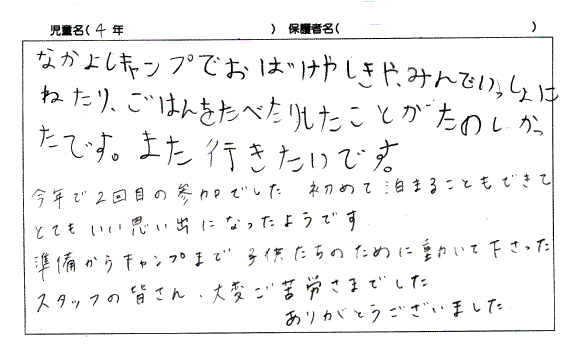 児童名( 4 年 ) 保護者名( )
なかよしキャンプでおばけやしきや、みんでいっしょに
ねたり、ごはんをたべたりしたことがたのしかっ
たです。また行きたいです。
今年で2回目の参加でした 初めて泊まることもできて
とてもいい思い出になったようです
準備からキャンプまで子供たちのために動いて下さった
スタッフの皆さん、大変ご苦労さまでした
ありがとうございました